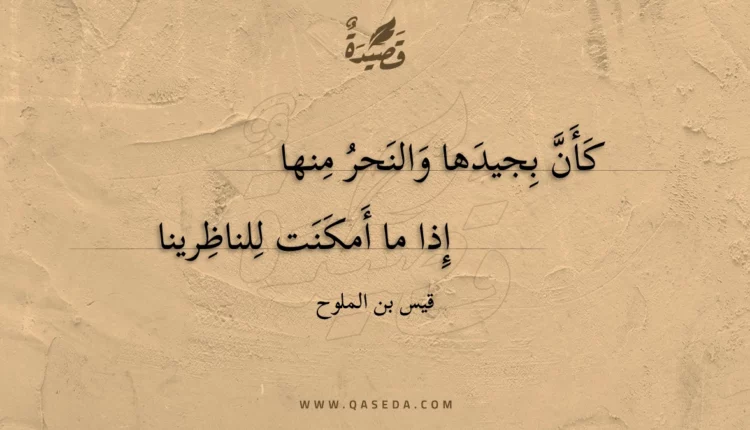 قَصِيدَةٌ
كَأَنَّ بِجيدَها وَالنَحرُ مِنها
إِذا ما أَمكَنَت لِلناظِرينا
قيس بن الملوح
WWW.QASEDA.COM